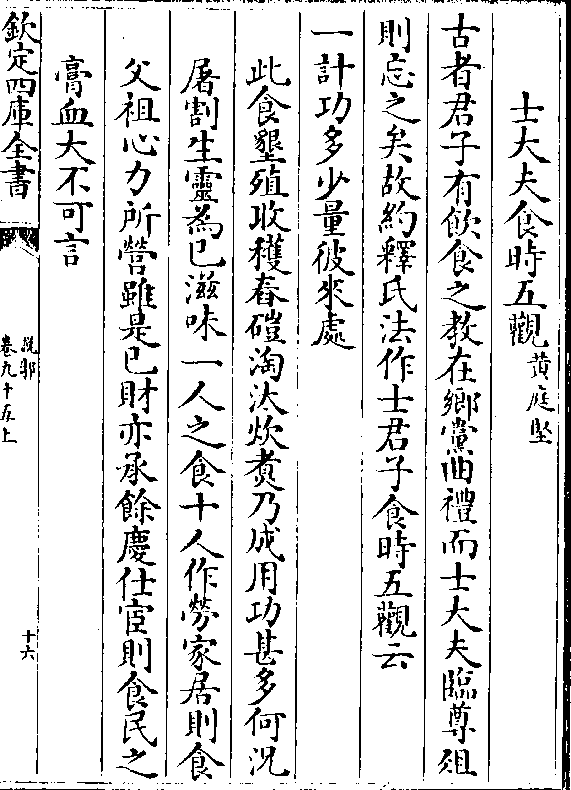 士大夫食時五觀黄庭堅
古者君子有飲食之教在鄉黨曲禮而士大夫臨尊俎
則忘之矣故約釋氏法作士君子食時五觀云
一計功多少量彼來處
此食墾殖收穫舂磑淘汰炊煑乃成用功甚多何況
屠割生靈為已滋味一人之食十人作勞家居則食
父祖心力所營雖是已財亦承餘慶仕宦則食民之
膏血大不可言
欽定四庫全書
説郛
卷九十五上
十六